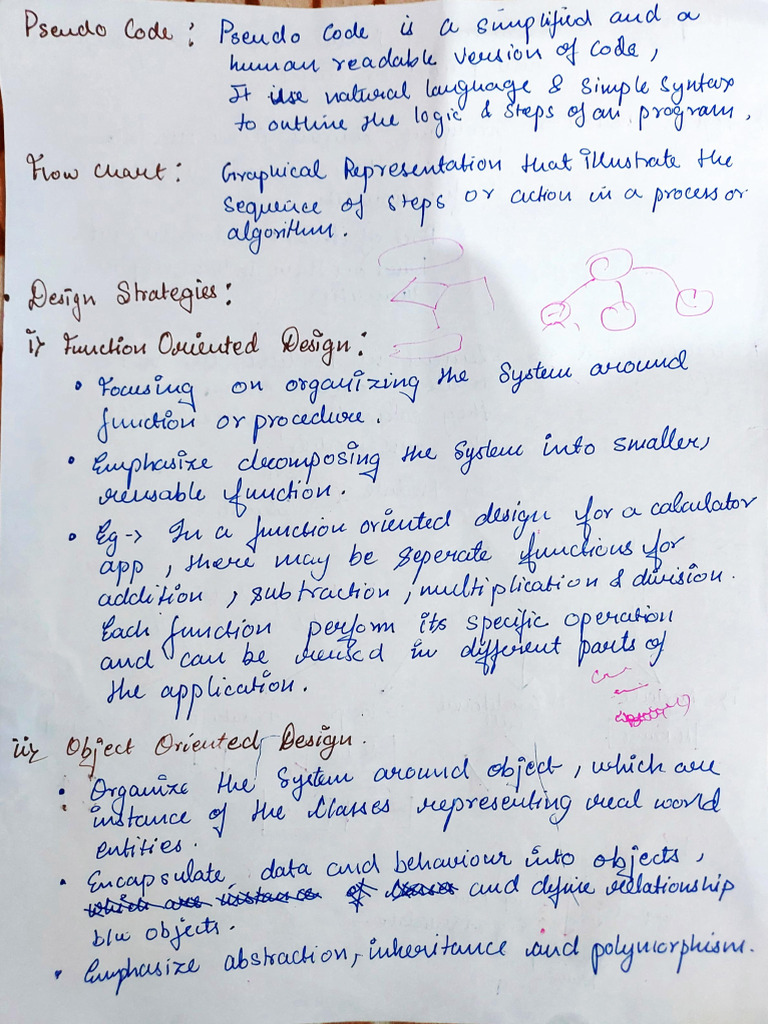 Pseudo Code : Pseudo Code is a simplified and a
human readable version of code,
It use natural language & simple syntax
to outline the logic & steps of an program.
Flow chart : Graphical Representation that illustrate the
sequence of steps or action in a process or
algorithm.
• Design Strategies :
i) Function Oriented Design :
• Focusing on organizing the System around
function or procedure.
• Emphasize decomposing the System into smaller,
reusable function.
• Eg → In a function oriented design for a calculator
app, there may be seperate functions for
addition, subtraction, multiplication & division.
Each function perform its specific operation
and can be reused in different parts of
the application.
ii) Object Oriented Design.
• Organize the System around object, which are
instance of the Classes representing real world
entities.
• Encapsulate data and behaviour into objects,
which are instance of classes and define relationship
b/w objects.
• Emphasize abstraction, inheritance and polymorphism.